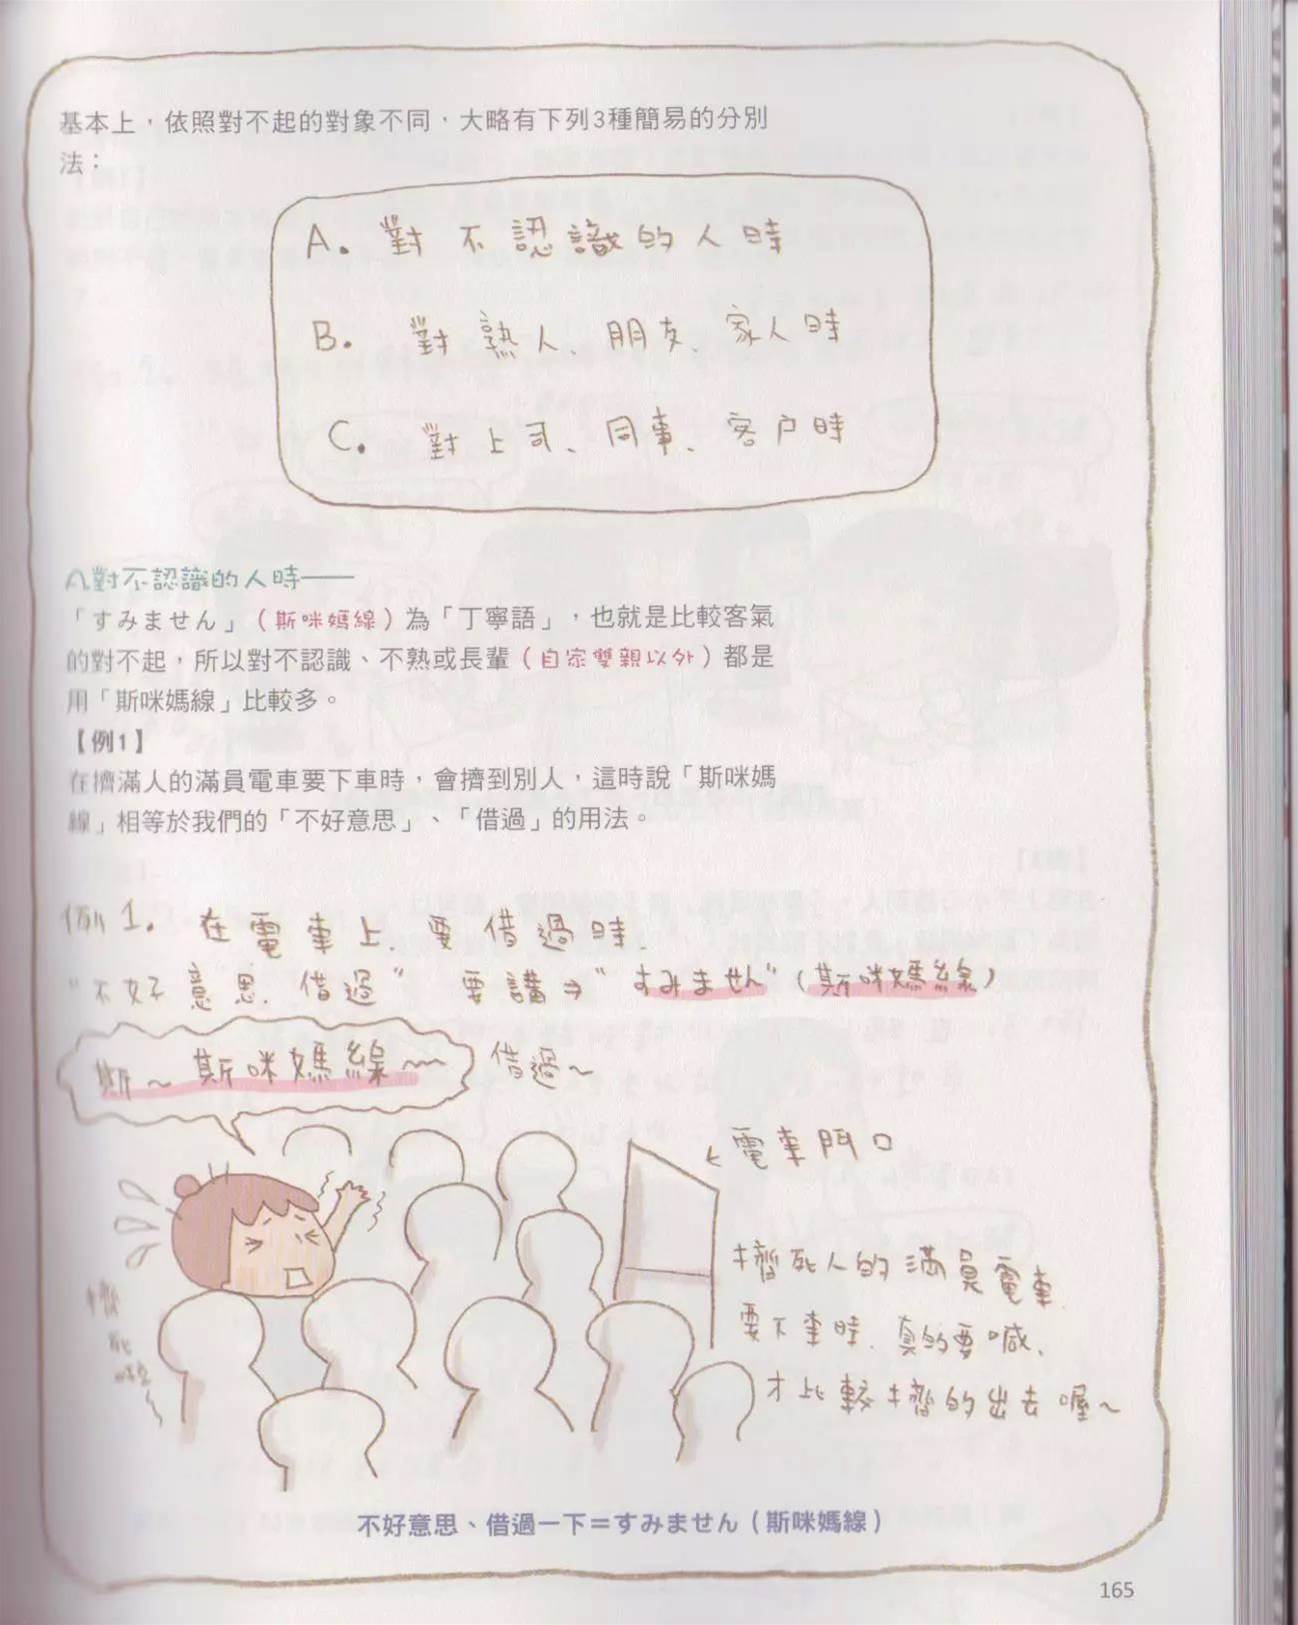 基本上，依照對不起的對象不同，大略有下列3種簡易的分別
法：
A. 對不認識的人時
B. 對熟人、朋友、家人時
C. 對上司、同事、客户時
A對不認識的人時──
「すみません」（斯咪媽線）為「丁寧語」，也就是比較客氣
的對不起，所以對不認識、不熟或長輩（自家雙親以外）都是
用「斯咪媽線」比較多。
【例1】
在擠滿人的滿員電車要下車時，會擠到別人，這時說「斯咪媽
線」相等於我們的「不好意思」、「借過」的用法。
例1. 在電車上、要借過時、
"不好意思、借過" 要講⇒"すみません"（斯咪媽線）
斯～斯咪媽線～～ 借過～
電車門口
擠死人的滿員電車、
要下車時、真的要喊、
才比較擠的出去喔～
擠死
不好意思、借過一下＝すみません（斯咪媽線）
165